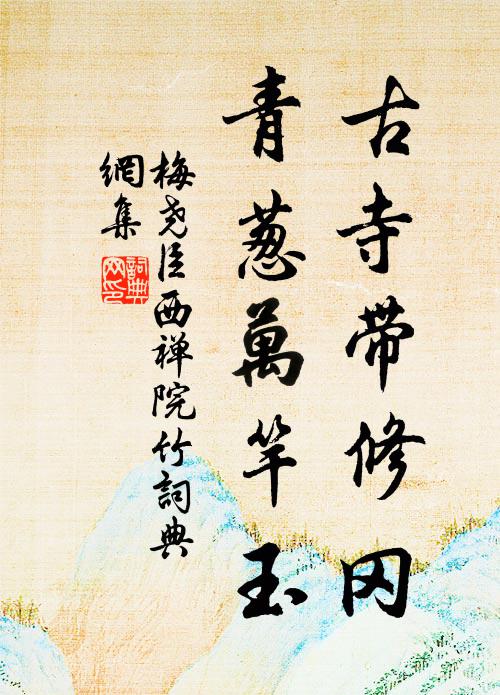 古寺带修冈
青葱萬竿玉
梅尧臣西禅院竹詞典
網集
詞典
网印